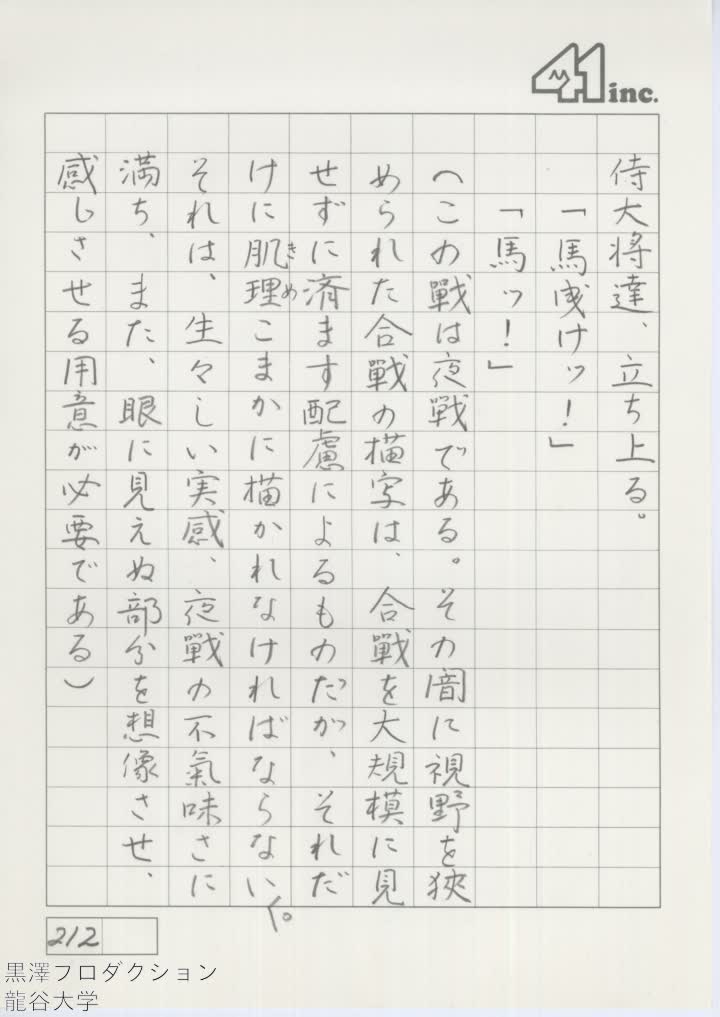 41 inc.
侍大将達、立ち上る。
「馬曳けッ！」
「馬ッ！」
（この戰は夜戰である。その闇に視野を狹
められた合戰の描写は、合戰を大規模に見
せずに済ます配慮によるものだが、それだ
けに肌理こまかに描かれなければならない。
きめ
それは、生々しい実感、夜戰の不氣味さに
満ち、また、眼に見えぬ部分を想像させ、
感じさせる用意が必要である）
212
黒澤フロダクション
龍谷大学